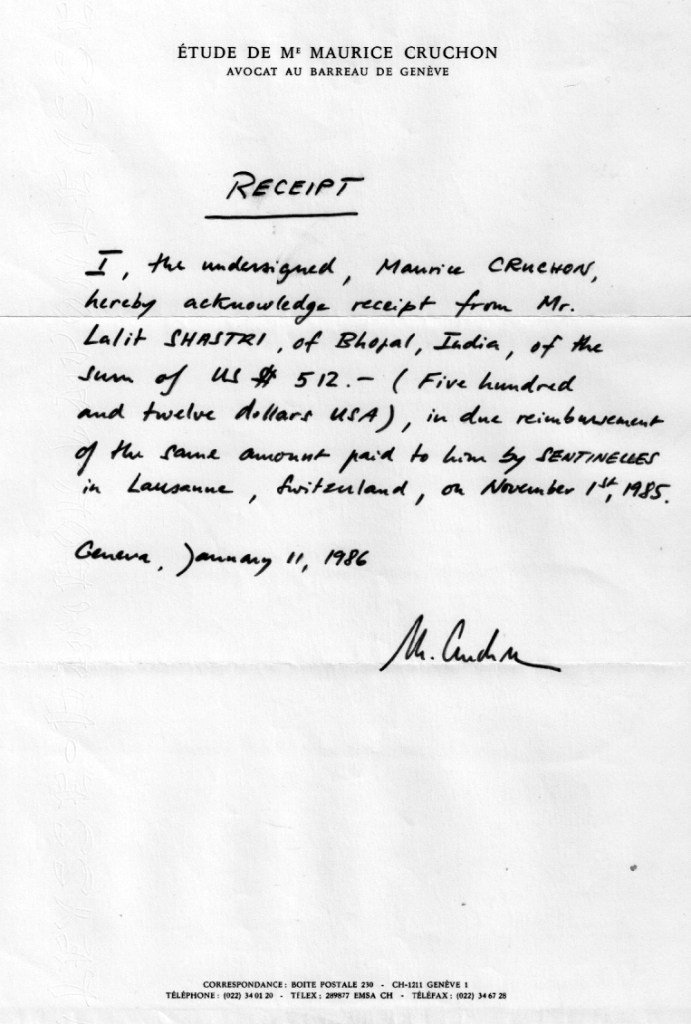 ÉTUDE DE Mᴱ MAURICE CRUCHON
AVOCAT AU BARREAU DE GENÈVE
RECEIPT
I, the undersigned, Maurice CRUCHON,
hereby acknowledge receipt from Mr.
Lalit SHASTRI, of Bhopal, India, of the
sum of US $ 512.— (Five hundred
and twelve dollars USA), in due reimbursement
of the same amount paid to him by SENTINELLES
in Lausanne, Switzerland, on November 1st, 1985.
Geneva, January 11, 1986
M. Cruchon
CORRESPONDANCE: BOITE POSTALE 230 - CH-1211 GENÈVE 1
TÉLÉPHONE: (022) 34 01 20 - TELEX: 289877 EMSA CH - TÉLÉFAX: (022) 34 67 28